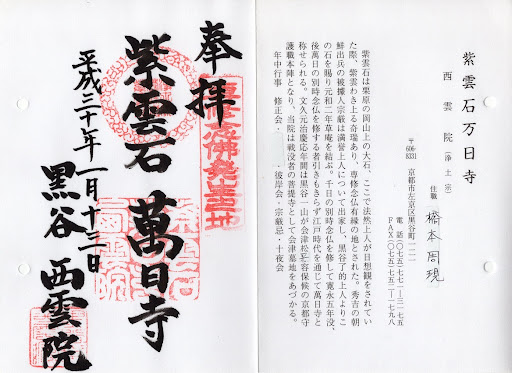 紫雲石万日寺
西雲院(浄土宗)
住職 橋本周現
〒606-8331 京都市左京区黒谷町一二一
電話〇七五-七七一-三一七五
FAX〇七五-七五二-一七九八
紫雲石は栗原の岡山上の大石、ここで法然上人が日想観をされてい
た際、紫雲わき上る奇瑞あり、専修念仏有縁の地とされた。秀吉の朝
鮮出兵の被擄人宗厳は満誉上人について出家し、黒谷了的上人よりこ
の石を賜り元和二年草庵を結ぶ。千日の別時念仏を修して寛永五年没、
後萬日の別時念仏を修する者引きもきらず江戸時代を通じて萬日寺と
称せられる。文久元治慶応年間は黒谷一山が会津松平容保候の京都守
護職本陣となり、当院は戦没者の菩提寺として会津墓地をあづかる。
年中行事 修正会・ ・彼岸会・宗厳忌・十夜会
奉拝
紫雲石 萬日寺
平成三十年一月十三日
黒谷 西雲院